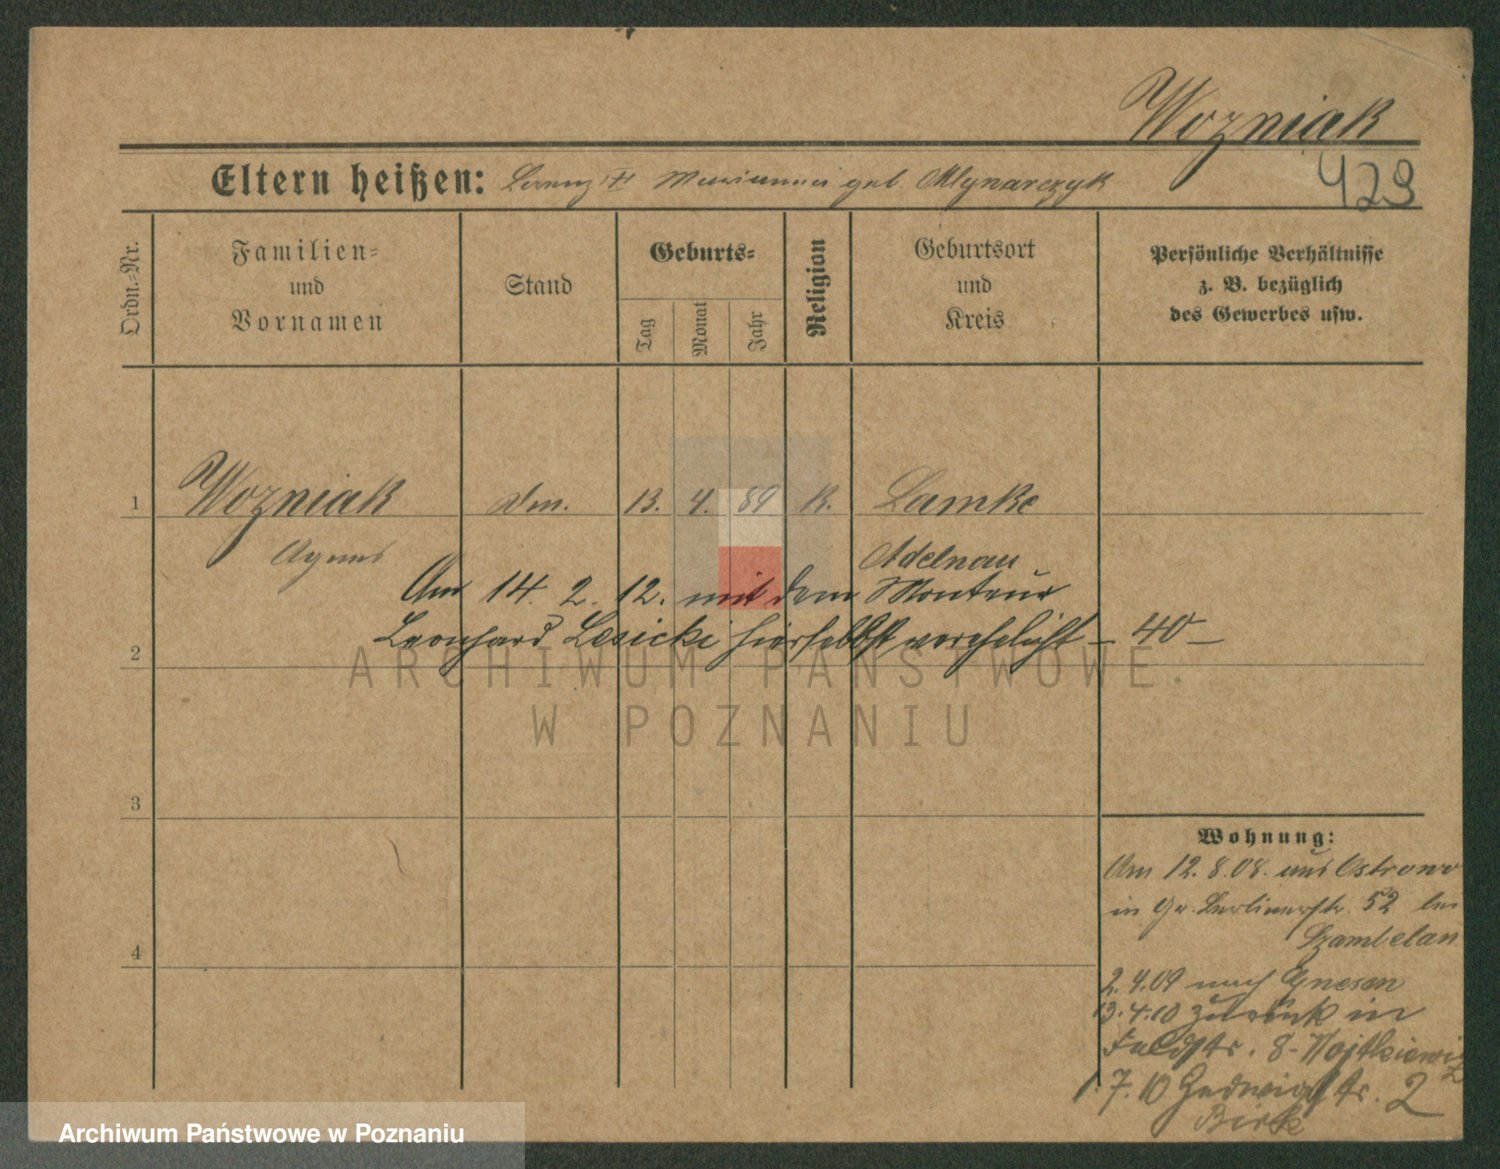 Wozniak
423
Eltern heißen: Lorenz † Marianna geb. Mlynarczyk
Ordn.-Nr.
Familien-
und
Vornamen
Stand
Geburts-
Tag
Monat
Jahr
Religion
Geburtsort
und
Kreis
Persönliche Verhältnisse
z. B. bezüglich
des Gewerbes usw.
1 Wozniak 13. 4. 89 K. Lamke
Agnes Adelnau
Am 14. 2. 12. mit dem Monteur
Leonhard Lesicki hierselbst verehelicht – 40 –
2
ARCHIWUM PAŃSTWOWE
W POZNANIU
3
4
Wohnung:
Am 12. 8. 08. aus Ostrowo
in Gr. Berlinerstr. 52 bei
Szambelan
2. 4. 09 nach Gnesen
13. 4. 10 zurück in
Feldstr. 8 - Wojtkiewicz
1. 7. 10 Hedwigstr. 2
Birk
Archiwum Państwowe w Poznaniu